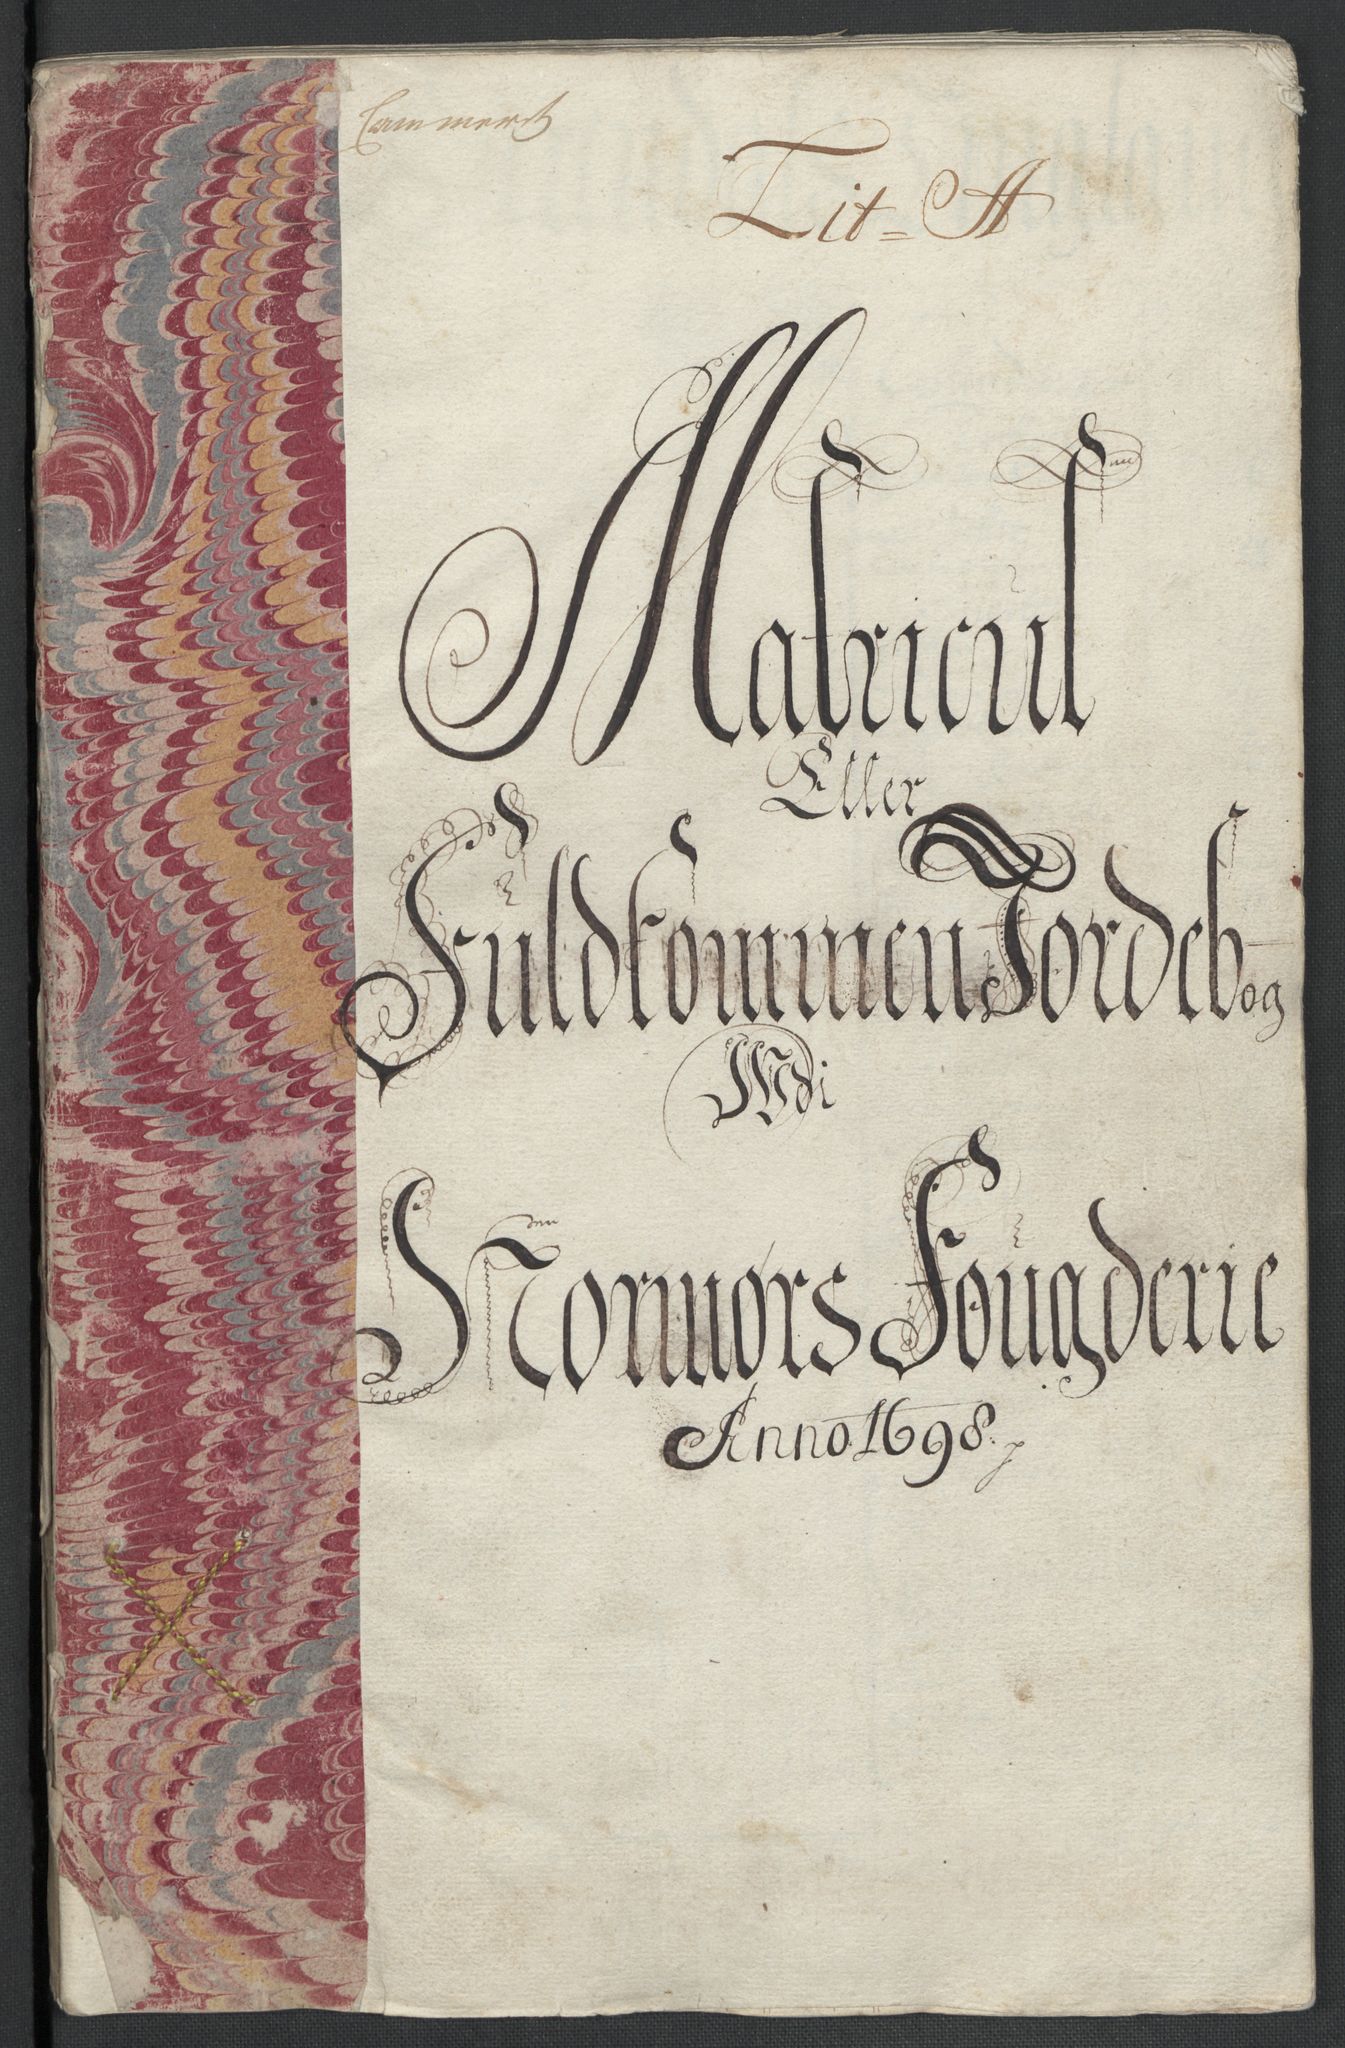 Lit= A
Matricul
Eller
Fuldkommen Jordebog
Wdi
Normørs Fougderie
Anno 1698.